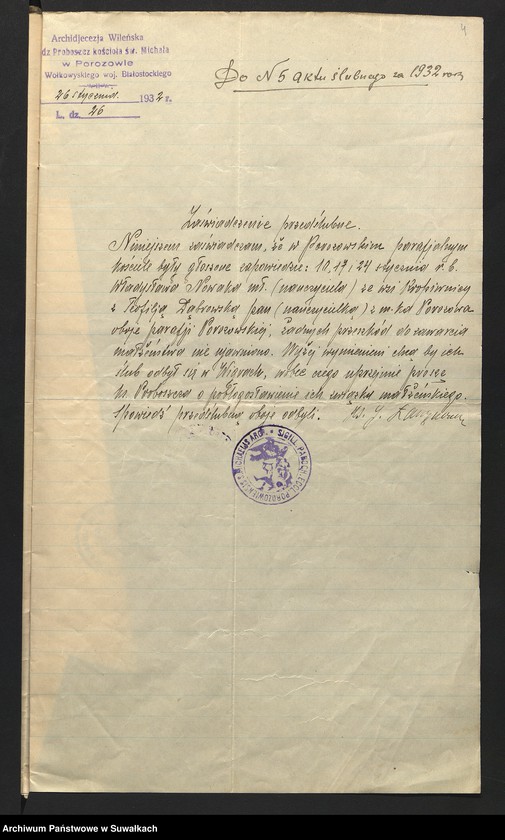 4
Archidjecezja Wileńska
dz Proboszcz kościoła św. Michała
w Porozowie
Wołkowyskiego woj. Białostockiego
26 stycznia 1932 r.
L. dz. 26
Do N 5 aktu ślubnego za 1932 rok
Zaświadczenie przedślubne.
Niniejszem zaświadczam, że w Porozowskim parafjalnym
kościele były głoszone zapowiedzie: 10, 17 i 24 stycznia r. b.
Władysława Nowaka mł. (nauczyciela) ze wsi
z Teofilją Dąbrowską pan (nauczycielką) z m-ka Porozowa
oboje parafji Porozowskiej, żadnych przeszkód do zawarcia
małżeństwa nie ujawniono. Wyżej wymienieni chcą by ich
ślub odbył się w, wobec czego uprzejmie proszę
ks. Proboszcza o pobłogosławienie ich związku małżeńskiego.
Spowiedź przedślubną oboje odbyli. Ks. J.
Archiwum Państwowe w Suwałkach